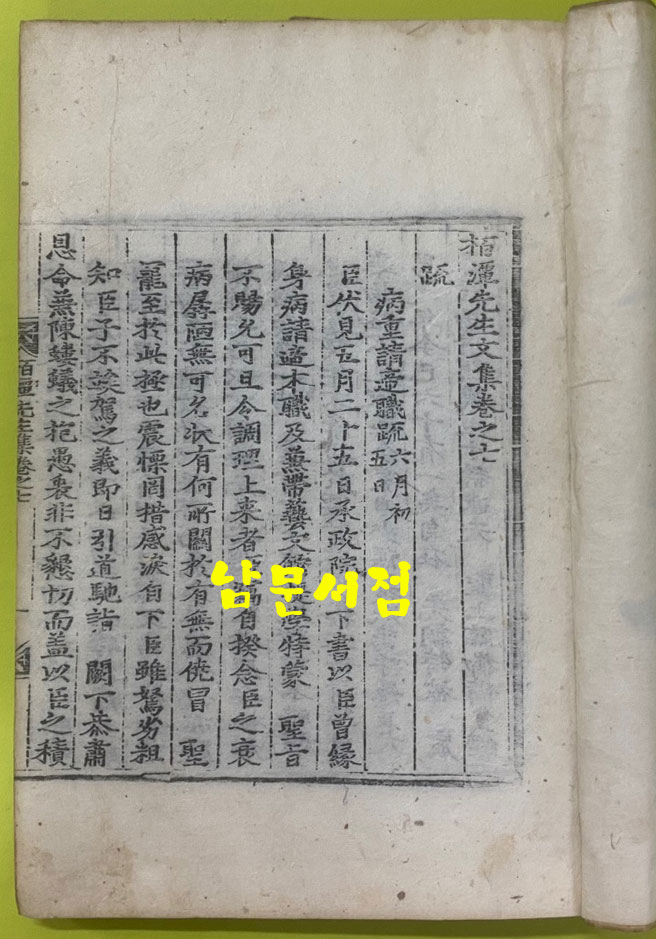 栢潭先生文集卷之七
疏
病重請遞職疏六月初五日
臣伏見五月二十五日承政院 下書以臣曾緣
身病請遞本職及兼帶藝文館 學特蒙 聖旨
不賜允可且令調理上來者 竊自揆念臣之衰
病孱陋無可名狀有何所關於有無而僥冒 聖
罷至於此極也震慄罔措感淚自下臣雖駑劣粗
知臣子不俟駕之義即日引道馳詣 闕下恭肅
恩命兼陳螻蟻之抱愚衷非不懇切而盖以臣之積
栢潭先生集卷之七
남문서점